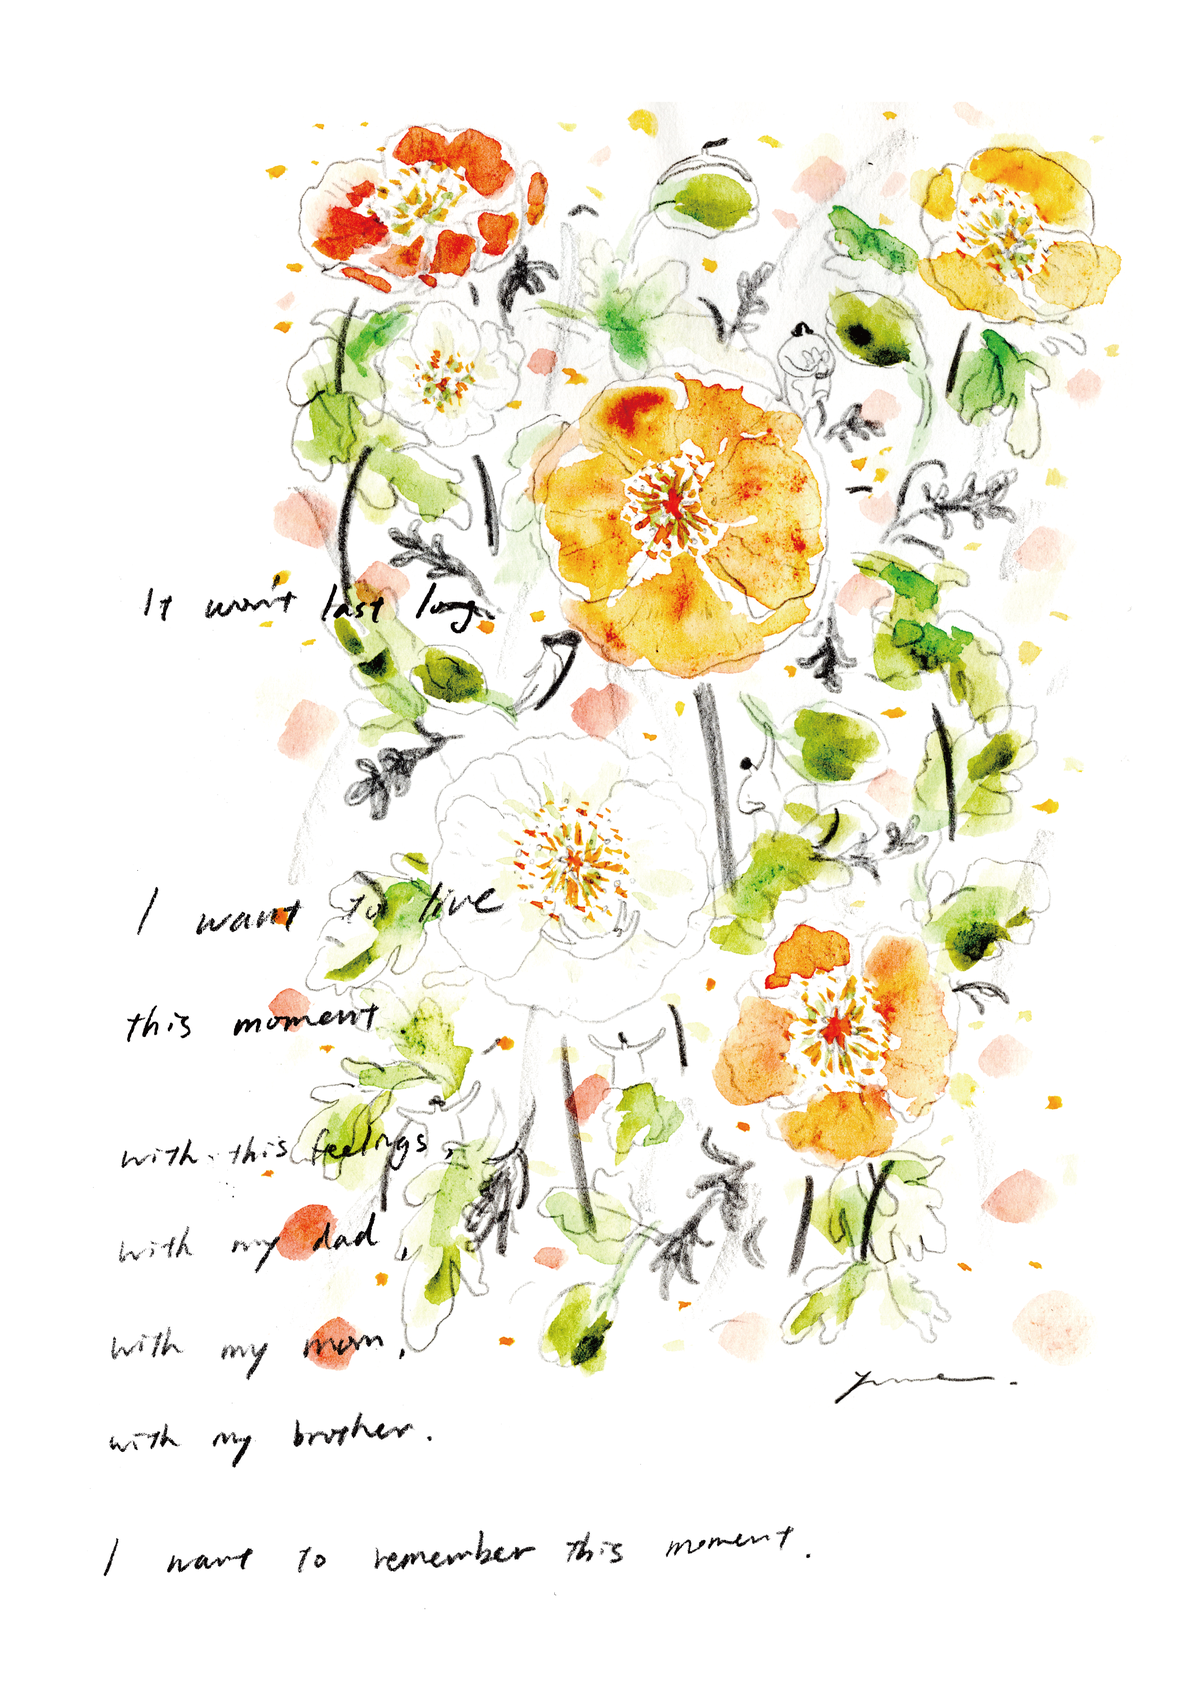 It won't last long.
I want to live
this moment
with this feelings,
with my dad,
with my mom,
with my brother.
I want to remember this moment.